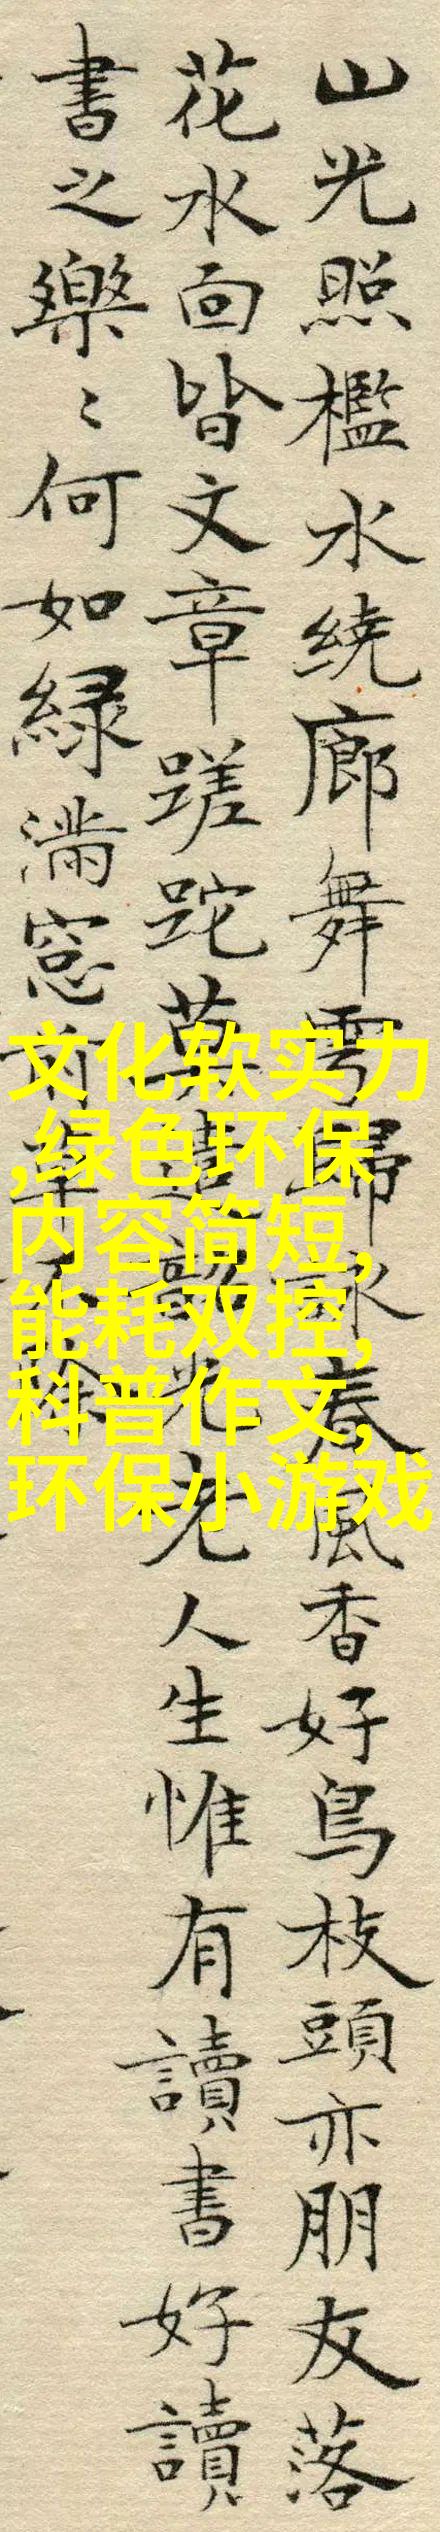 山光照檻水绕廊舞雩歸詠春風香好鳥枝頭亦朋友落
花水面皆文章蹉跎莫遣韶光老人生惟有讀書好讀
書之樂〻何如緑滿窓前草不除
文化软实力
,绿色环保
内容简短,
能耗双控,
科普作文,
环保小游戏